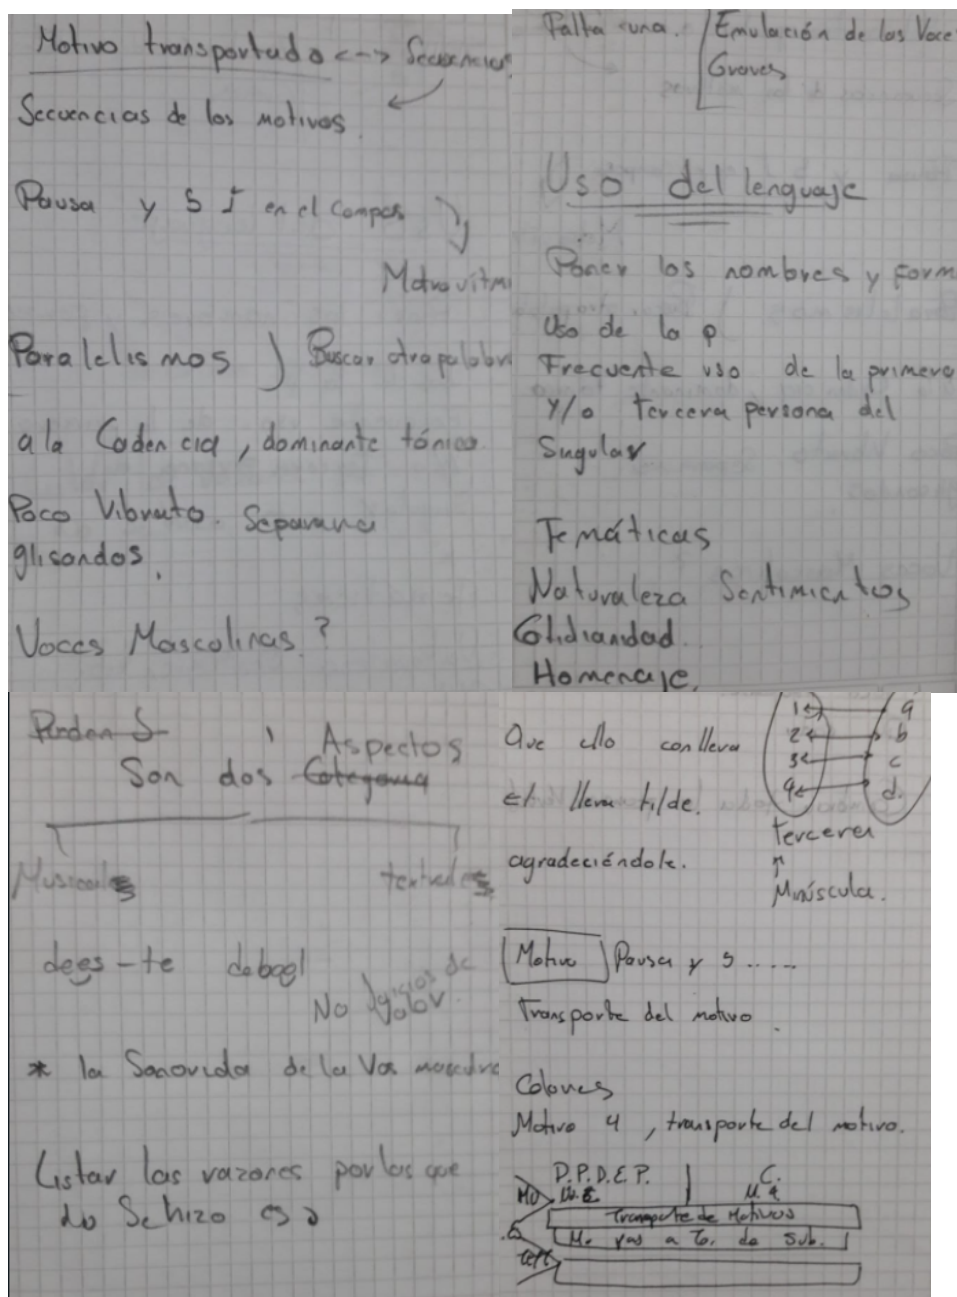 Motivo transportado <--> Secuencias
Secuencias de los motivos.
Pausa y 5 I en el compas
Paralelismos ) Buscar otra palabra
a la Cadencia, dominante tónica.
Poco Vibrato. Separana
glisandos.
Voces Masculinas ?
Falta una.
Emulación de las Voce
Graves
Uso del lenguaje
Poner los nombres y form
Uso de la φ
Frecuente uso de la primera
y/o tercera persona del
Singular
Temáticas
Naturaleza Sentimientos
Cotidianidad
Homenaje,
Aspectos
Son dos Categoria
Musicales
textuales
No Juicios de
valor.
* la Sonorida de la Vos
Listar las razones por las que
do Se hizo eso
Que ello conlleva
lleva tilde.
agradeciéndole.
1 a
2 b
3 c
4 d.
tercera
↑
Minúscula.
Motivo Pausa y 5 .....
Transporte del motivo.
Colores
Motivo 4, transporte del motivo.
D.P.D.E.P. C.
Transporte de Motivos